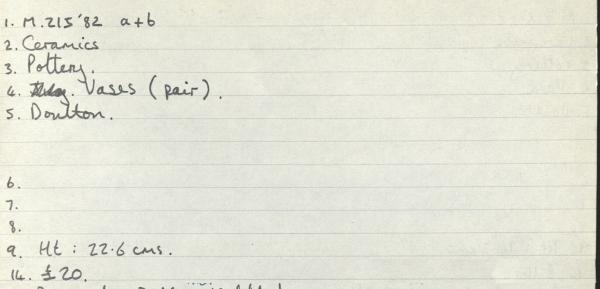 1. M.215 '82 a+b
2. Ceramics
3. Pottery.
4. Vases (pair).
5. Doulton.
6.
7.
8.
9. Ht : 22.6 cms.
14. £20.